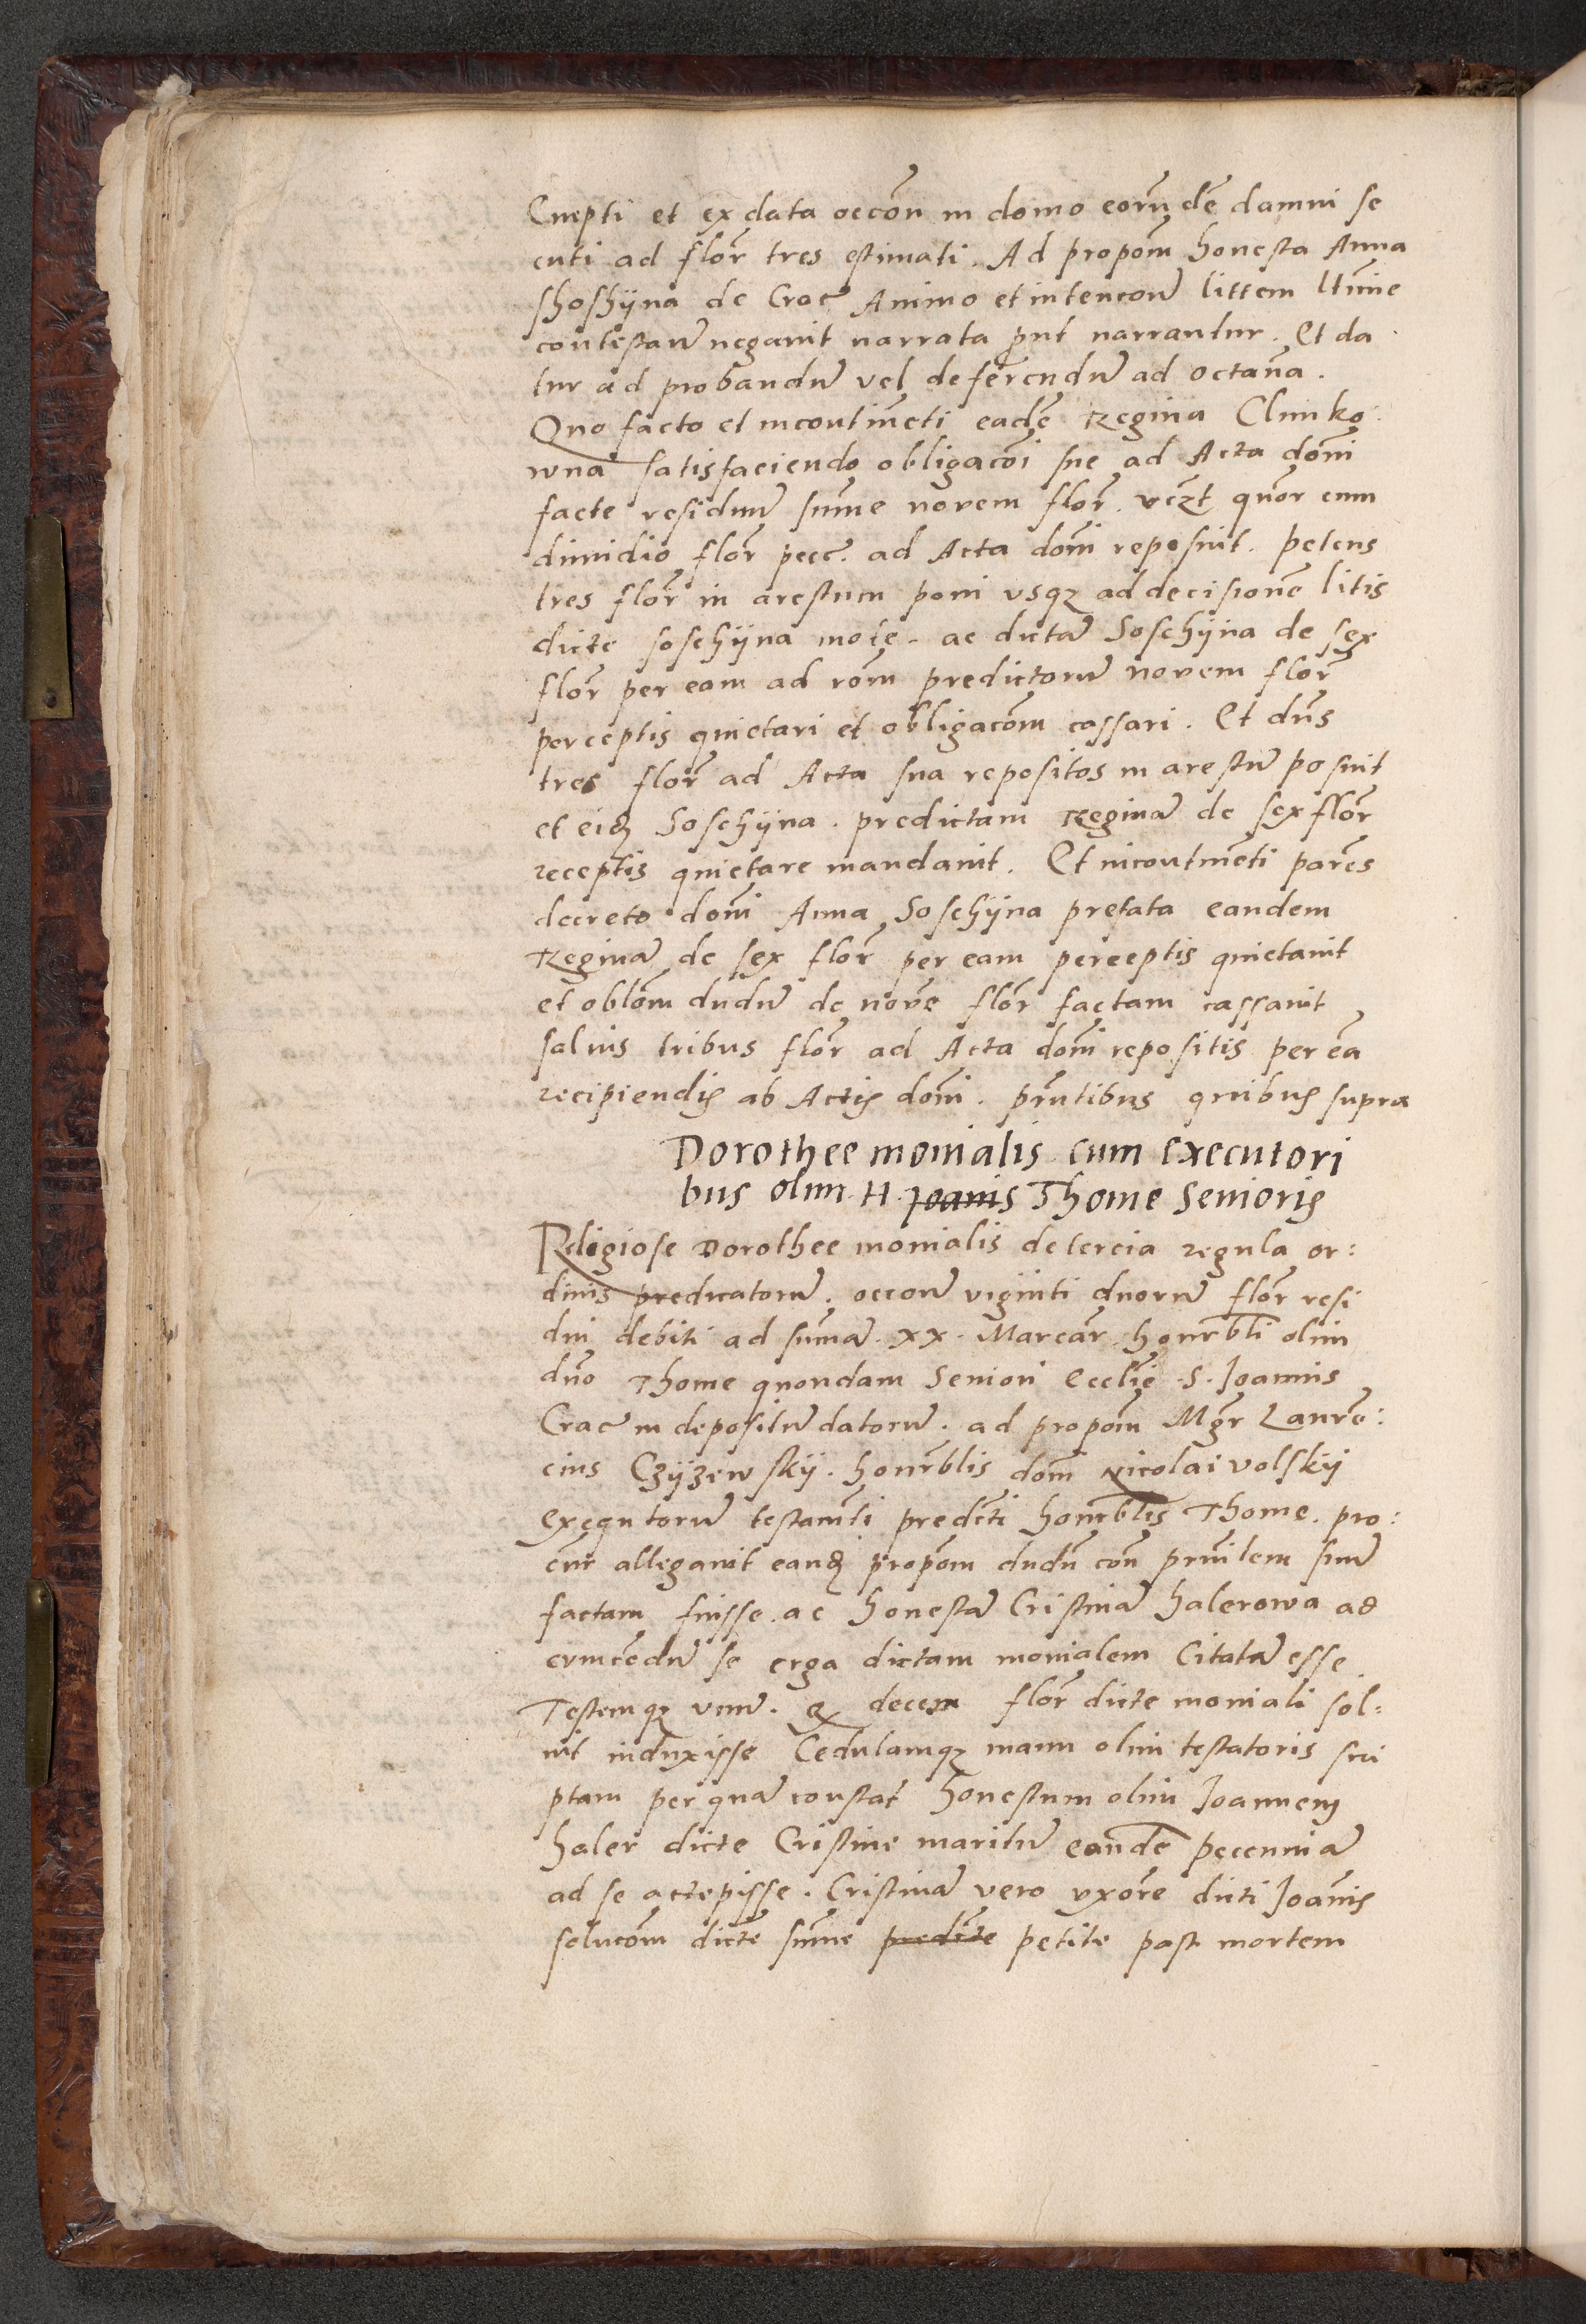 Cmepti et ex data occon̄ in domo eorūdē damni se
cuti ad flor̄ tres estimati. Ad propom̄ honesta Anna
shoshÿna de Crac̄ Animo et intencōn̄ littem ll̄time
contestan̄ negavit narrata put narrantur. Et da
tur ad probandū vel deferendū ad octavā.
Quo facto et incontinēti eadē Regina Clim ko
wna satisfaciendo obligacōi sue ad Acta dom̄
facte residuū sum̄e novem flor̄. vczt quor cum
dimidio flor̄ pecc̄. ad Acta dom̄ reposuit. petens
tres flor̄ in arestum poni vsqz ad decisionē litis
dicte soschÿna mote. ac dictā Soschÿna de sex
flor̄ per eam ad rōm̄ predictorū novem flor̄
perceptis quietari et obligacōm̄ cassari. Et dn̄s
tres flor̄ ad Acta sua repositos in arestū posuit
et eidē Soschÿna. predictam Reginā de sex flor̄
receptis quietare mandavit. Et incontinēti parēs
decreto dom̄ Anna Soschÿna prefata eandem
Reginā de sex flor̄ per eam perceptis quietavit
et oblom̄ dudū de novē flor̄ factam cassavit
salvis tribus flor̄ ad Acta dom̄ repositis per eā
recipiendis ab Actis dom̄. prn̄tibus quibus supra
Dorothee monialis cum executori
bus olim H. Joanis Thome Senioris
Religiose Dorothee monialis de tercia regula or:
dinis predicatorū. occonē viginti duorū flor̄ resi
dui debiti ad sum̄ā. xx. Marcar̄ honrbli olim
dn̄o Thome quondam Seniori Ecclīe S. Joannis
Crac̄ in depositū datorū. ad propom̄ Mgr̄ Laurē:
cius Czÿzewskÿ. honr̄blis dom̄ Nicolai volskÿ
exequtorū testamēti predc̄ti honr̄blis Thome. pro:
cur̄ allegavit eandē propom̄ dudū con̄ prn̄tem suū
factam fuisse. ac honestā Cristinā halerowa ad
evincēdū se erga dictam monialem Citatā esse
Testemqz vnū. qȝ decem flor̄ dicte moniali sol=
vit induxisse Cedulamqz manu olim testatoris scri
ptam per quā constat honestum olim Joannem
haler dicte Cristine maritū eandē pecuniā
ad se accepisse. Cristinā vero vxorē dicti Joānis
solucōm̄ dictē sum̄e predc̄te petite post mortem